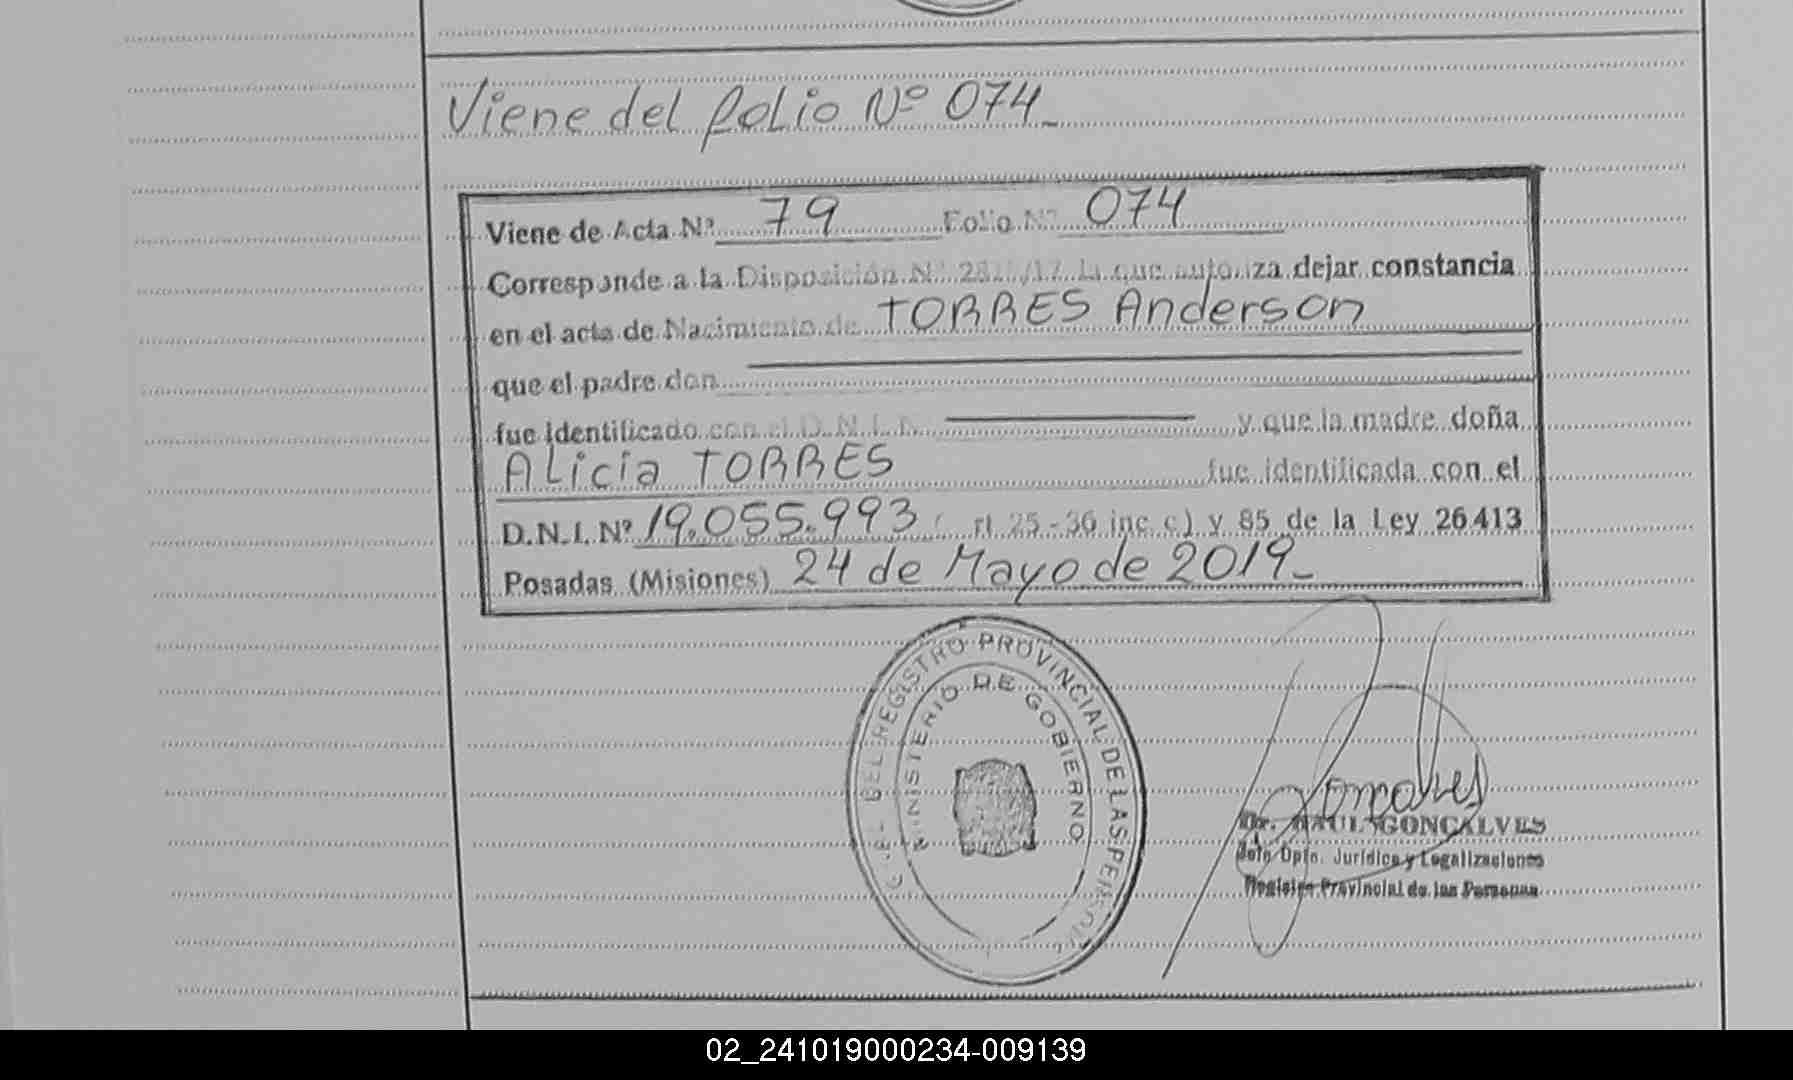 Viene del folio Nº 074_
Viene de Acta Nº 79 Folio Nº 074
Corresponde a la Disposición Nº /17 la que autoriza dejar constancia
en el acta de Nacimiento de TORRES Anderson
que el padre don
fue identificado con el D.N.I. N y que la madre doña
Alicia TORRES fue identificada con el
D.N.I. Nº 19.055.993 ( rt 25-36 inc c) y 85 de la Ley 26413
Posadas (Misiones) 24 de Mayo de 2019_
DEL REGISTRO PROVINCIAL DE LAS PERSONAS
MINISTERIO DE GOBIERNO
Gonçalves
Dr. RAUL GONÇALVES
Jefe Dpto. Jurídico y Legalizaciones
Registro Provincial de las Personas
02_241019000234-009139